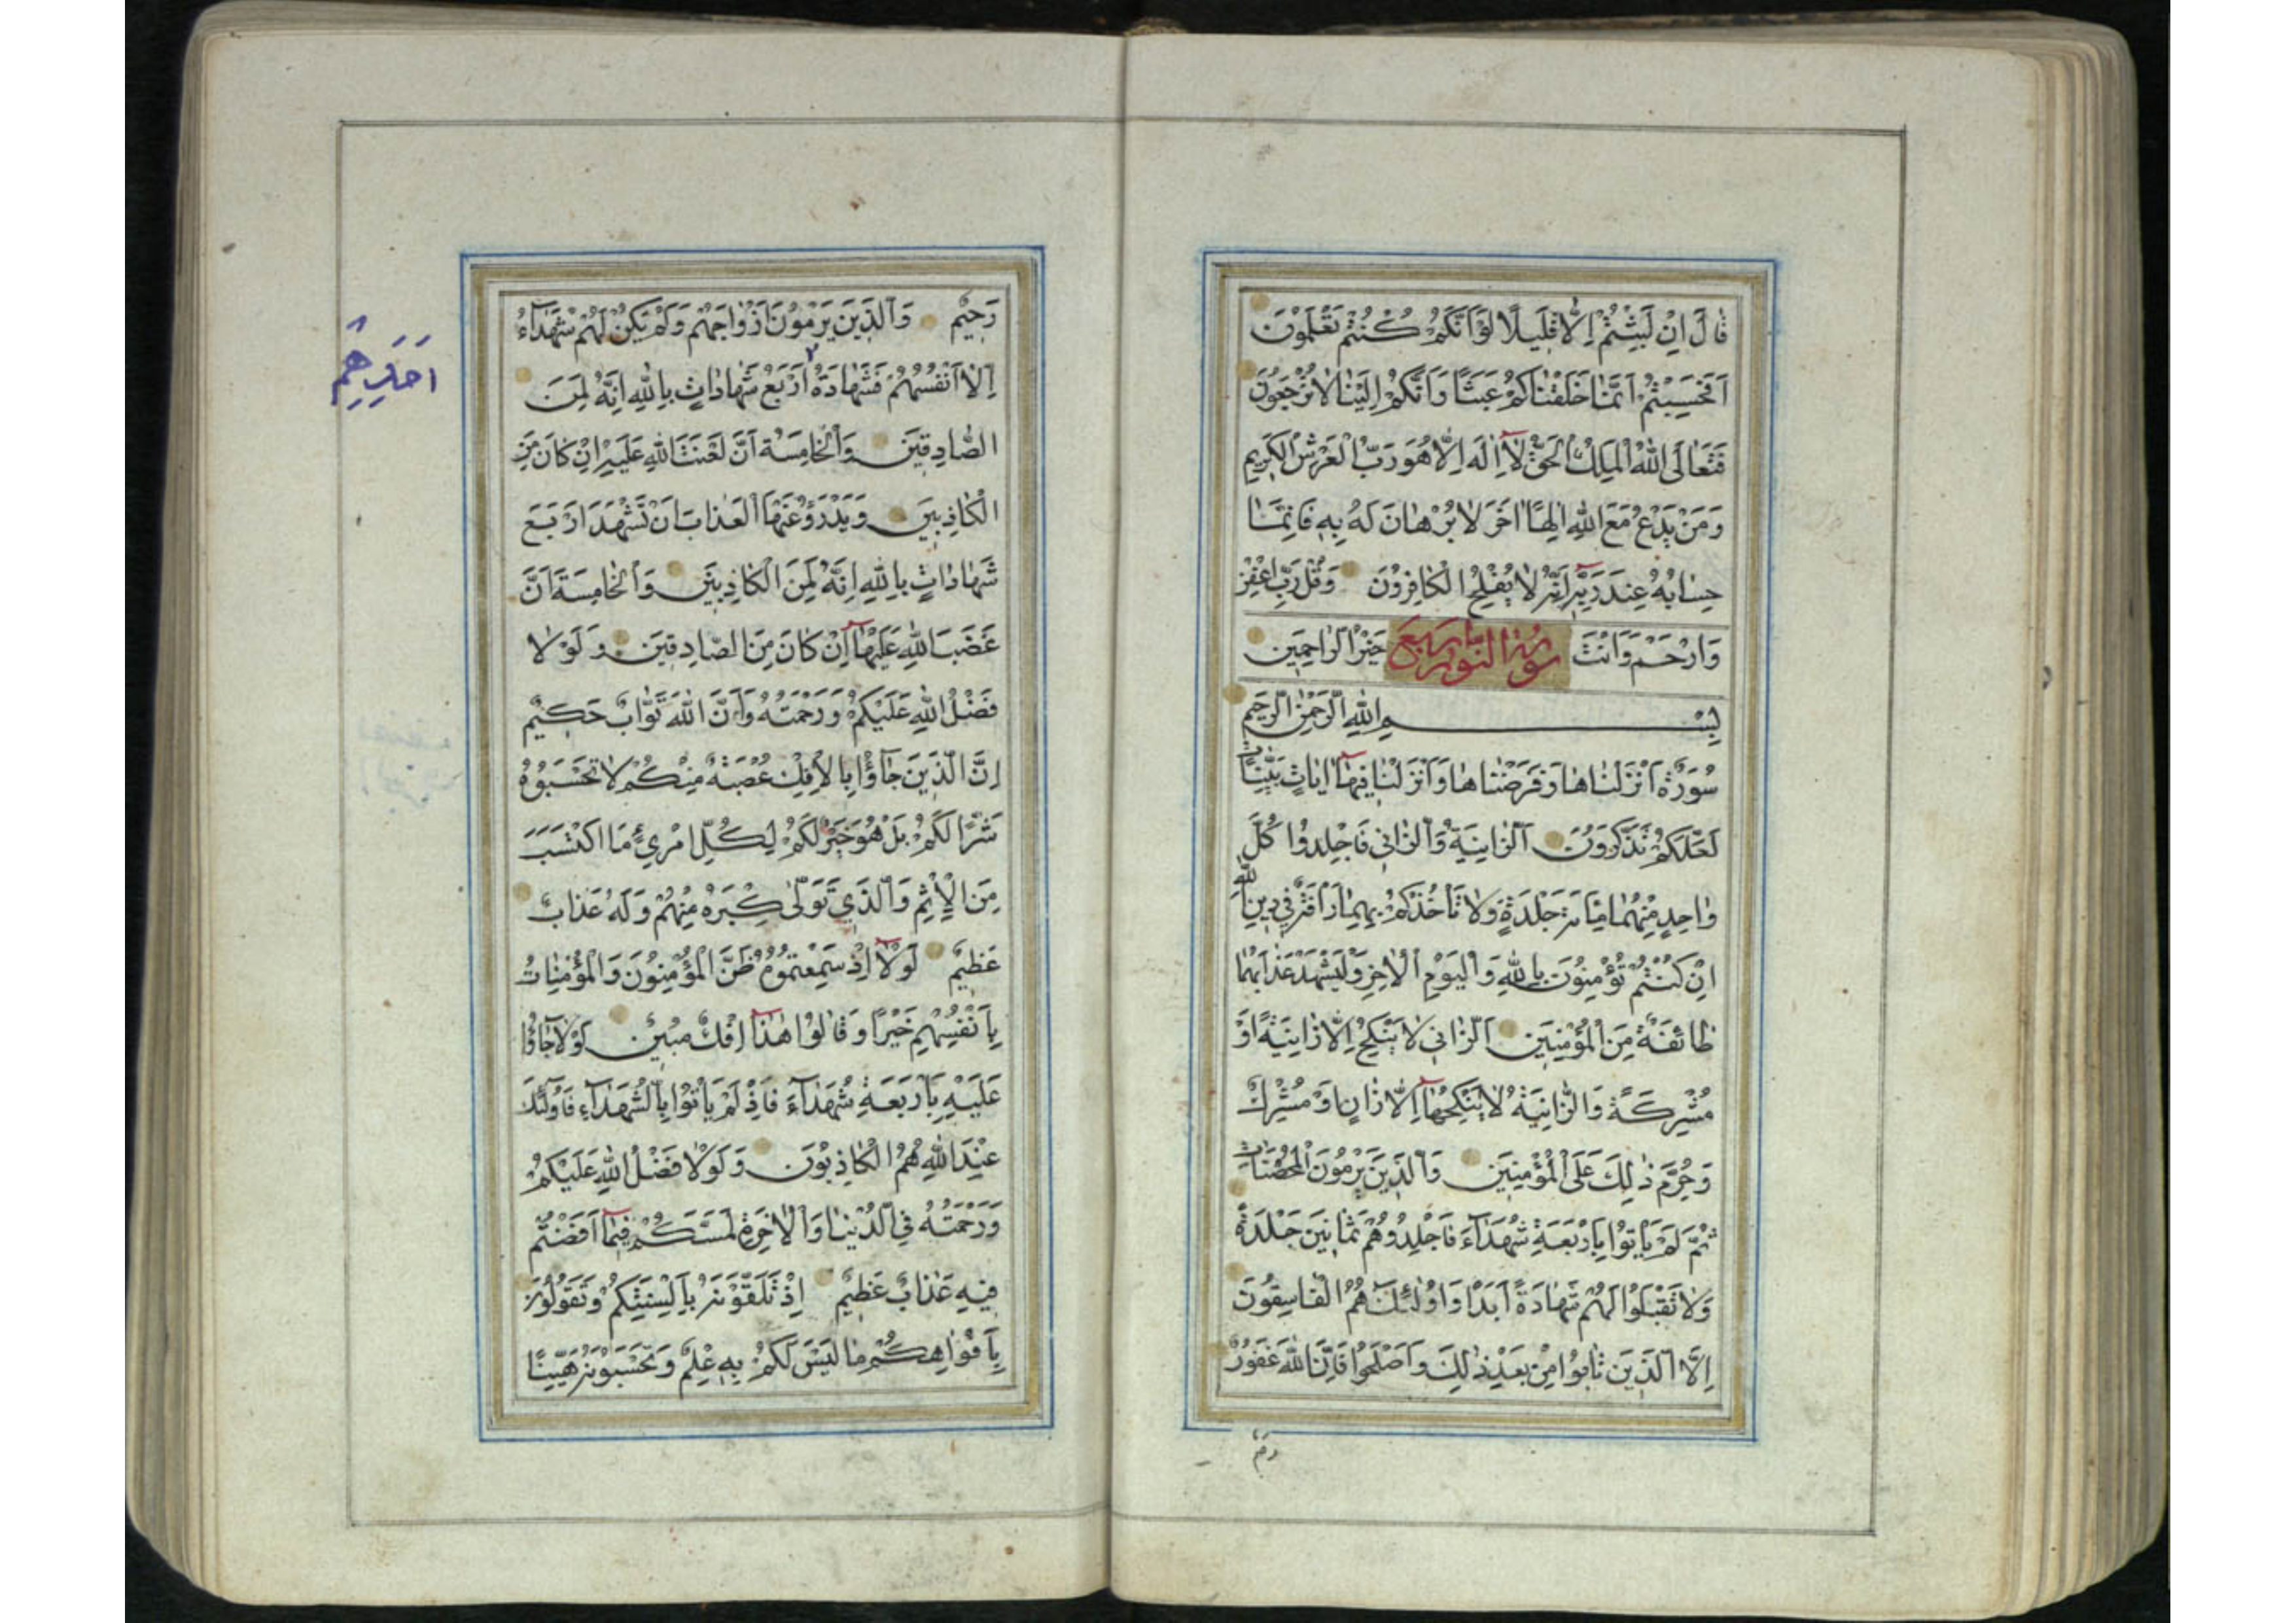 قَالَ اِنْ لَبِثْتُمْ اِلَّا قَلِيلًا لَوْ اَنَّكُمْ كُنْتُمْ تَعْلَمُونَ
اَفَحَسِبْتُمْ اَنَّمَا خَلَقْنَاكُمْ عَبَثًا وَاَنَّكُمْ اِلَيْنَا لَا تُرْجَعُونَ
فَتَعَالَى اللّٰهُ الْمَلِكُ الْحَقُّ لَا اِلٰهَ اِلَّا هُوَ رَبُّ الْعَرْشِ الْكَرِيمِ
وَمَنْ يَدْعُ مَعَ اللّٰهِ اِلٰهًا اٰخَرَ لَا بُرْهَانَ لَهُ بِهِ فَاِنَّمَا
حِسَابُهُ عِنْدَ رَبِّهِ اِنَّهُ لَا يُفْلِحُ الْكَافِرُونَ وَقُلْ رَبِّ اغْفِرْ
وَارْحَمْ وَاَنْتَ خَيْرُ الرَّاحِمِينَ
سورة النور
بِسْمِ اللّٰهِ الرَّحْمٰنِ الرَّحِيمِ
سُورَةٌ اَنْزَلْنَاهَا وَفَرَضْنَاهَا وَاَنْزَلْنَا فِيهَا اٰيَاتٍ بَيِّنَاتٍ
لَعَلَّكُمْ تَذَكَّرُونَ اَلزَّانِيَةُ وَالزَّانِي فَاجْلِدُوا كُلَّ
وَاحِدٍ مِنْهُمَا مِائَةَ جَلْدَةٍ وَلَا تَأْخُذْكُمْ بِهِمَا رَأْفَةٌ فِي دِينِ اللّٰهِ
اِنْ كُنْتُمْ تُؤْمِنُونَ بِاللّٰهِ وَالْيَوْمِ الْاٰخِرِ وَلْيَشْهَدْ عَذَابَهُمَا
طَائِفَةٌ مِنَ الْمُؤْمِنِينَ اَلزَّانِي لَا يَنْكِحُ اِلَّا زَانِيَةً اَوْ
مُشْرِكَةً وَالزَّانِيَةُ لَا يَنْكِحُهَا اِلَّا زَانٍ اَوْ مُشْرِكٌ
وَحُرِّمَ ذٰلِكَ عَلَى الْمُؤْمِنِينَ وَالَّذِينَ يَرْمُونَ الْمُحْصَنَاتِ
ثُمَّ لَمْ يَأْتُوا بِاَرْبَعَةِ شُهَدَاءَ فَاجْلِدُوهُمْ ثَمَانِينَ جَلْدَةً
وَلَا تَقْبَلُوا لَهُمْ شَهَادَةً اَبَدًا وَاُولٰئِكَ هُمُ الْفَاسِقُونَ
اِلَّا الَّذِينَ تَابُوا مِنْ بَعْدِ ذٰلِكَ وَاَصْلَحُوا فَاِنَّ اللّٰهَ غَفُورٌ
رَحِيمٌ وَالَّذِينَ يَرْمُونَ اَزْوَاجَهُمْ وَلَمْ يَكُنْ لَهُمْ شُهَدَاءُ
اِلَّا اَنْفُسُهُمْ فَشَهَادَةُ اَرْبَعُ شَهَادَاتٍ بِاللّٰهِ اِنَّهُ لَمِنَ
اَحَدِهِمْ
الصَّادِقِينَ وَالْخَامِسَةُ اَنَّ لَعْنَتَ اللّٰهِ عَلَيْهِ اِنْ كَانَ مِنَ
الْكَاذِبِينَ وَيَدْرَؤُ عَنْهَا الْعَذَابَ اَنْ تَشْهَدَ اَرْبَعَ
شَهَادَاتٍ بِاللّٰهِ اِنَّهُ لَمِنَ الْكَاذِبِينَ وَالْخَامِسَةَ اَنَّ
غَضَبَ اللّٰهِ عَلَيْهَا اِنْ كَانَ مِنَ الصَّادِقِينَ وَلَوْلَا
فَضْلُ اللّٰهِ عَلَيْكُمْ وَرَحْمَتُهُ وَاَنَّ اللّٰهَ تَوَّابٌ حَكِيمٌ
اِنَّ الَّذِينَ جَاؤُا بِالْاِفْكِ عُصْبَةٌ مِنْكُمْ لَا تَحْسَبُوهُ
شَرًّا لَكُمْ بَلْ هُوَ خَيْرٌ لَكُمْ لِكُلِّ امْرِئٍ مَا اكْتَسَبَ
مِنَ الْاِثْمِ وَالَّذِي تَوَلّٰى كِبْرَهُ مِنْهُمْ وَلَهُ عَذَابٌ
عَظِيمٌ لَوْلَا اِذْ سَمِعْتُمُوهُ ظَنَّ الْمُؤْمِنُونَ وَالْمُؤْمِنَاتُ
بِاَنْفُسِهِمْ خَيْرًا وَقَالُوا هٰذَا اِفْكٌ مُبِينٌ لَوْلَا جَاؤُا
عَلَيْهِ بِاَرْبَعَةِ شُهَدَاءَ فَاِذْ لَمْ يَأْتُوا بِالشُّهَدَاءِ فَاُولٰئِكَ
عِنْدَ اللّٰهِ هُمُ الْكَاذِبُونَ وَلَوْلَا فَضْلُ اللّٰهِ عَلَيْكُمْ
وَرَحْمَتُهُ فِي الدُّنْيَا وَالْاٰخِرَةِ لَمَسَّكُمْ فِيمَا اَفَضْتُمْ
فِيهِ عَذَابٌ عَظِيمٌ اِذْ تَلَقَّوْنَهُ بِاَلْسِنَتِكُمْ وَتَقُولُونَ
بِاَفْوَاهِكُمْ مَا لَيْسَ لَكُمْ بِهِ عِلْمٌ وَتَحْسَبُونَهُ هَيِّنًا